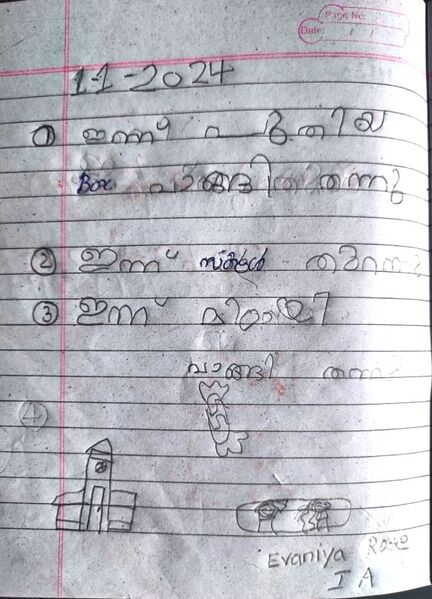 Page No:
Date: / /
1-1-2024
① ഇന്ന് പുതിയ
Box വാങ്ങിത്തന്നു
② ഇന്ന് സ്കൂൾ തുറന്നു
③ ഇന്ന് മിഠായി
വാങ്ങി തന്നു
④
Evaniya Rose
I A